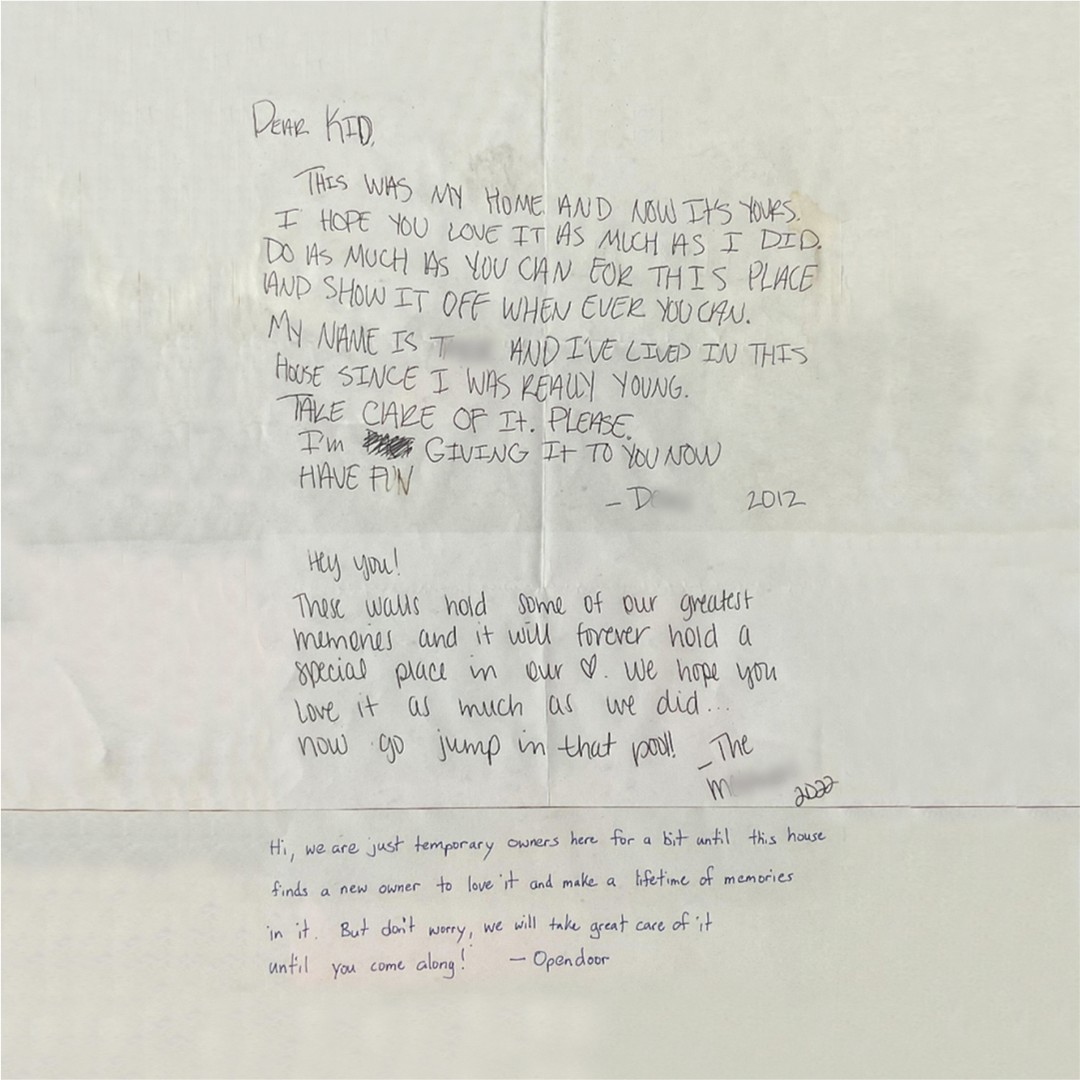 DEAR KID,
THIS WAS MY HOME AND NOW IT'S YOURS.
I HOPE YOU LOVE IT AS MUCH AS I DID.
DO AS MUCH AS YOU CAN FOR THIS PLACE
AND SHOW IT OFF WHEN EVER YOU CAN.
MY NAME IS T AND I'VE LIVED IN THIS
HOUSE SINCE I WAS REALLY YOUNG.
TAKE CARE OF It. PLEASE.
I'm GIVING It TO YOU NOW
HAVE FUN
- D 2012
Hey you!
These walls hold some of our greatest
memories and it will forever hold a
special place in our ♡. We hope you
love it as much as we did...
now go jump in that pool! - The
M 2022
Hi, we are just temporary owners here for a bit until this house
finds a new owner to love it and make a lifetime of memories
in it. But don't worry, we will take great care of it
until you come along! - Opendoor